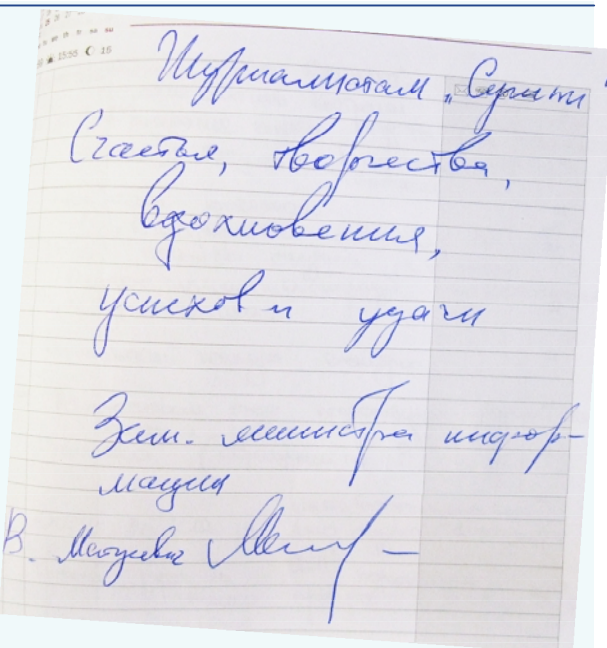 15:55 16
Журналистам „
Счастья, творчества,
вдохновения,
успехов и удачи
Зам. министра инфор-
мации
В.